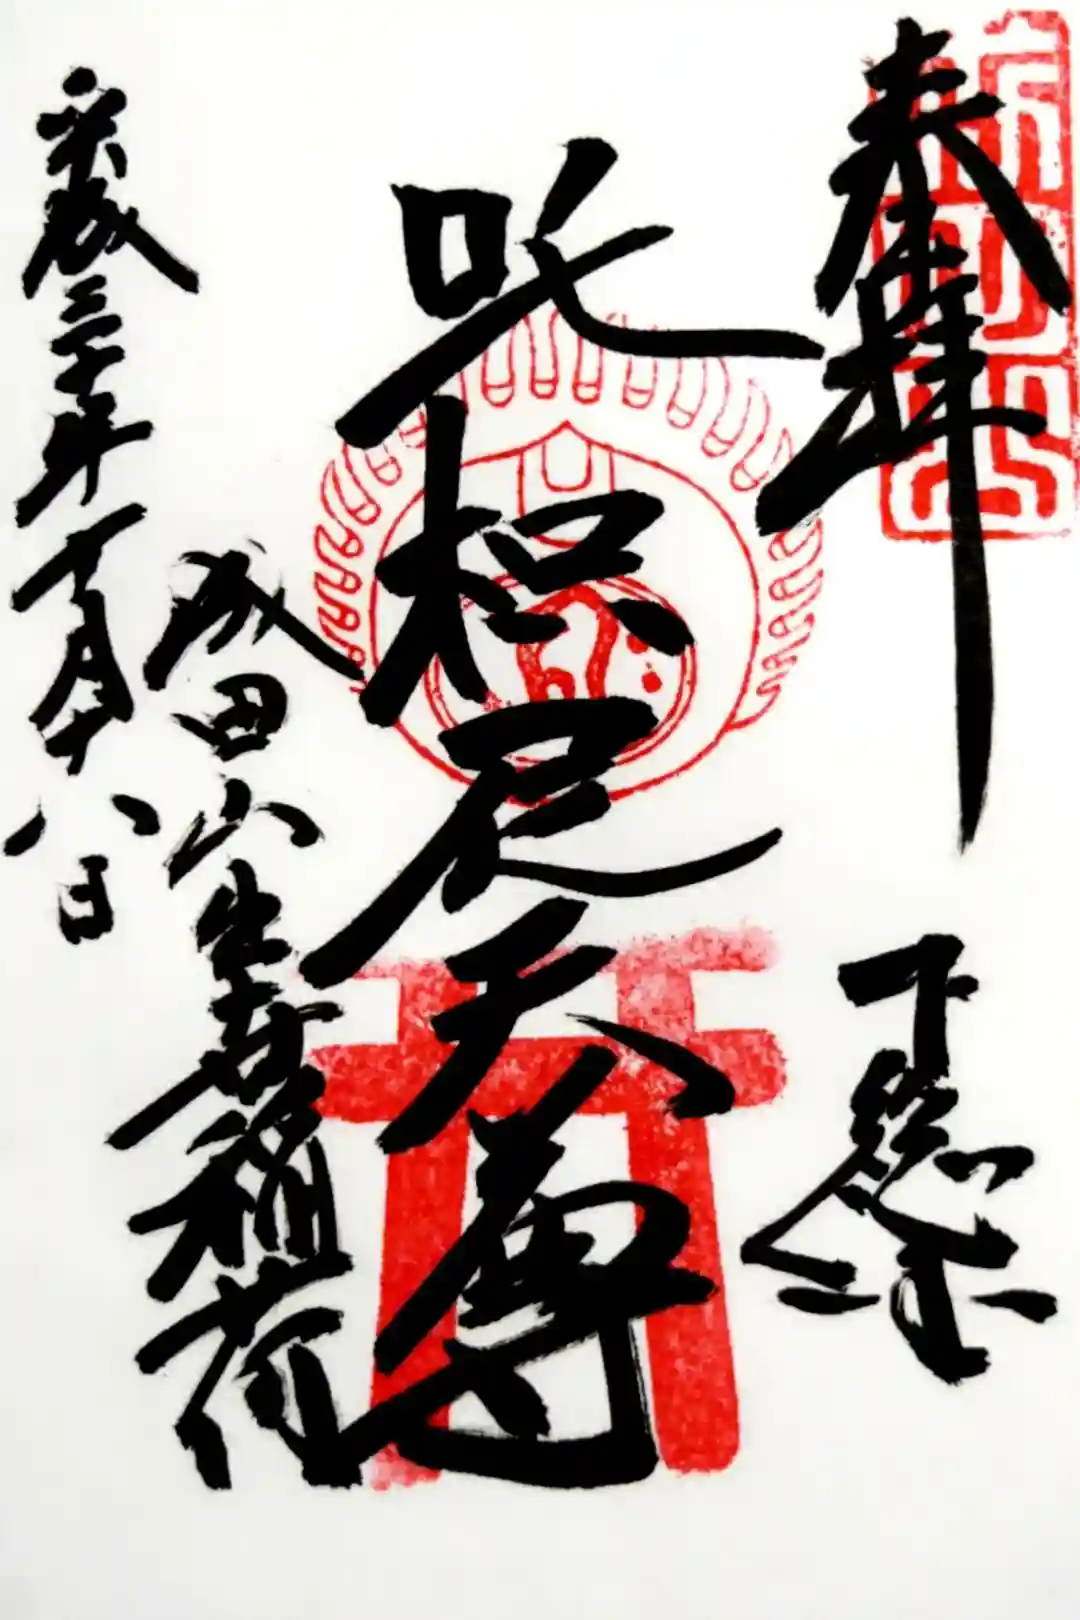 奉拝
下総
吒枳尼天尊
成田山出世稲荷
平成三十年十一月十八日